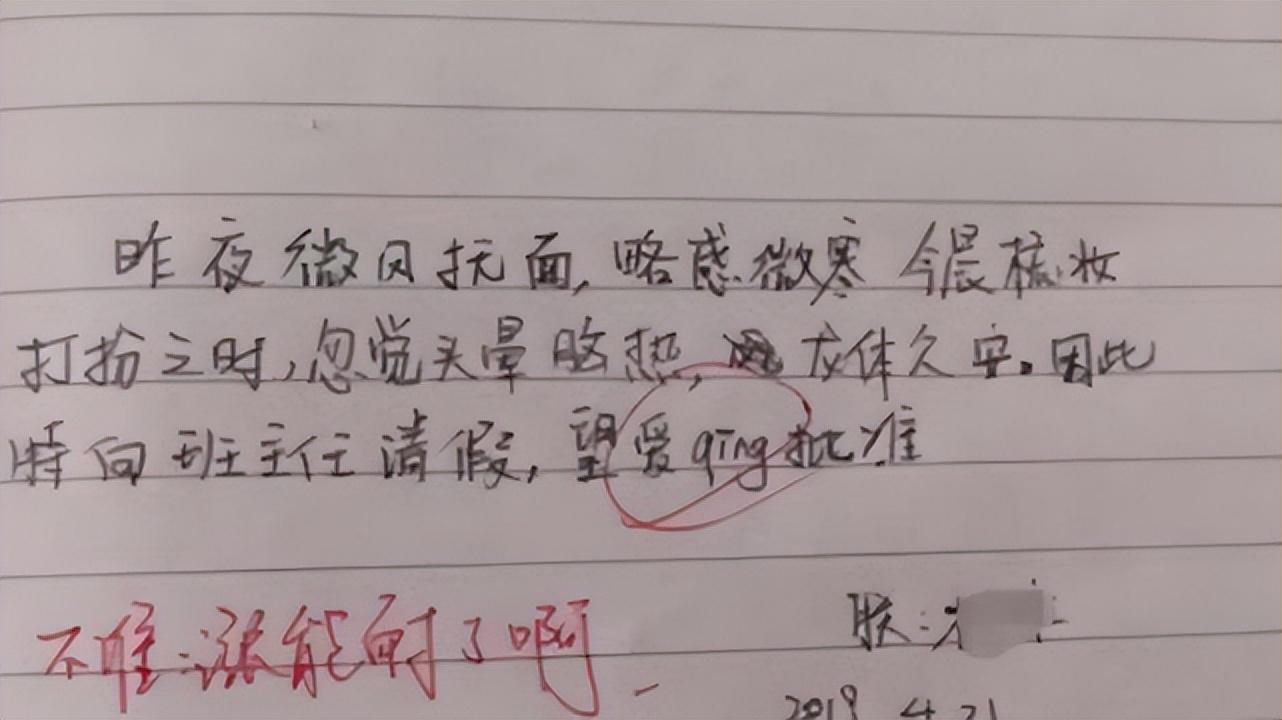 昨夜微风抚面,略感微寒 今晨梳妆
打扮之时,忽觉头晕脑热, 龙体欠安。因此
特向班主任请假,望爱qīng批准
不准:涨能耐了啊
朕:
2019.4.21